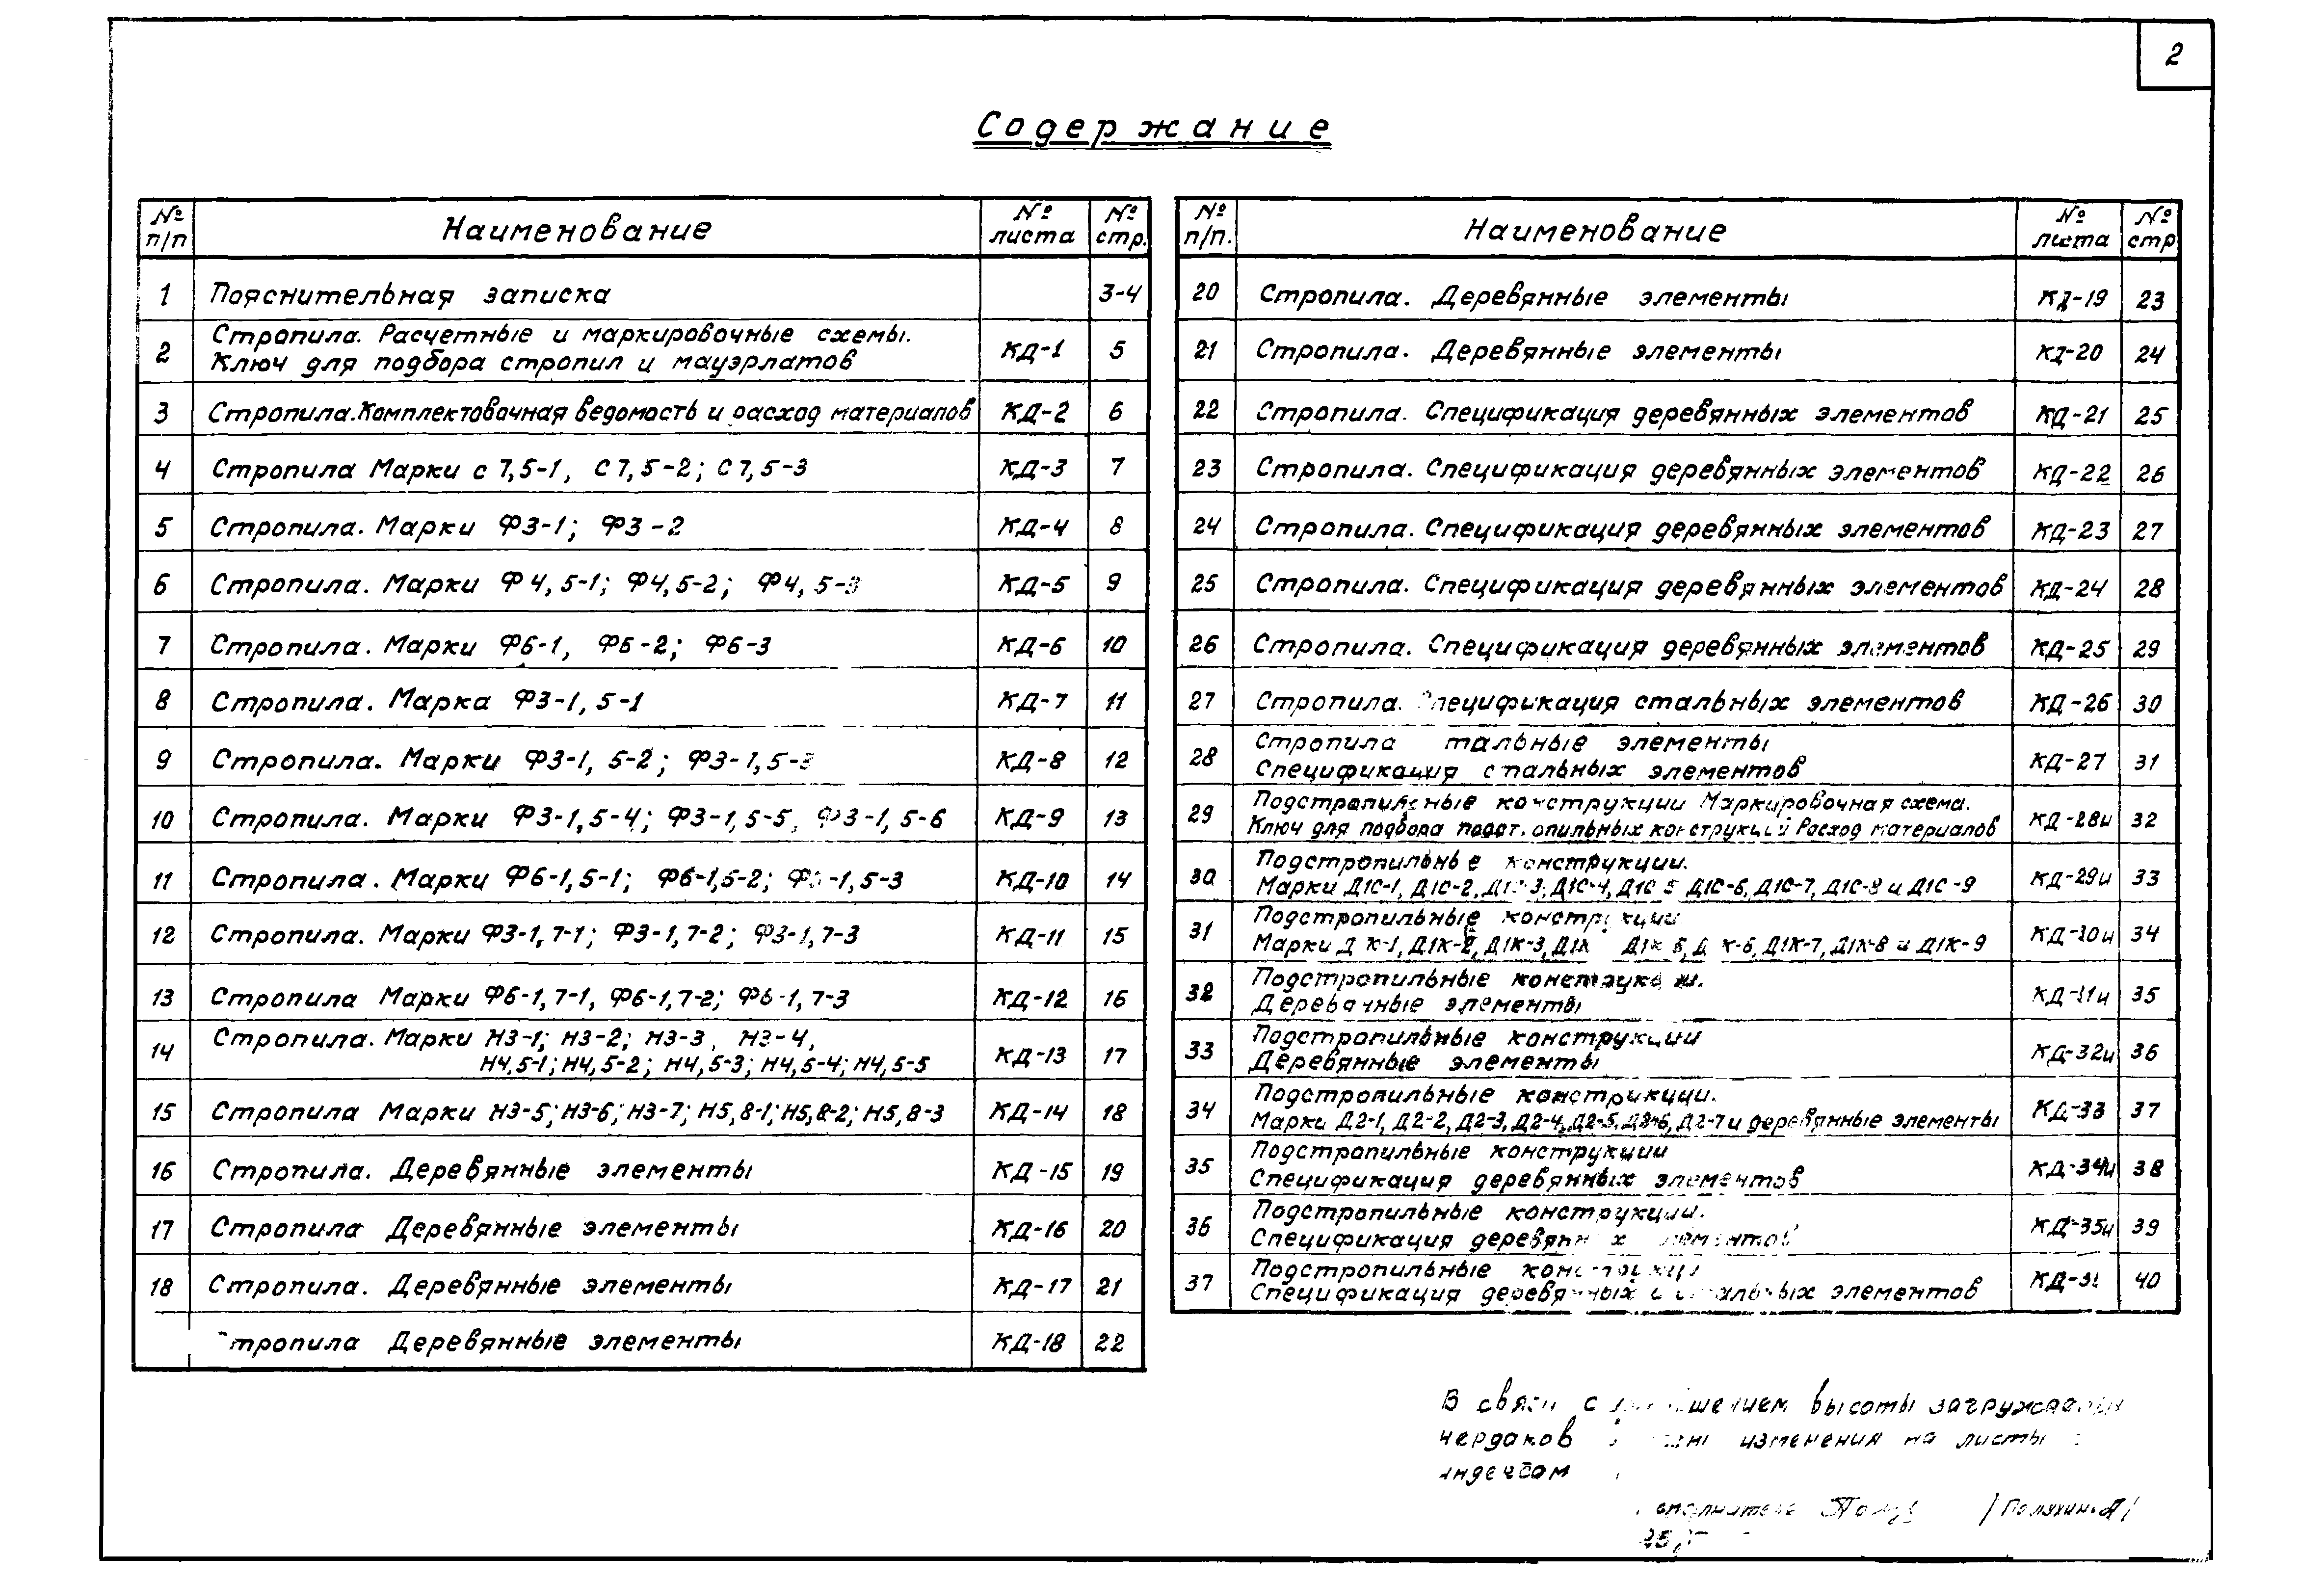 2
Содержание
№ п/п Наименование № листа № стр.
1 Пояснительная записка 3-4
2 Стропила. Расчетные и маркировочные схемы.
Ключ для подбора стропил и мауэрлатов КД-1 5
3 Стропила. Комплектовочная ведомость и расход материалов КД-2 6
4 Стропила Марки с 7,5-1, С 7,5-2; С 7,5-3 КД-3 7
5 Стропила. Марки Ф3-1; Ф3-2 КД-4 8
6 Стропила. Марки Ф4,5-1; Ф4,5-2; Ф4,5-3 КД-5 9
7 Стропила. Марки Ф6-1, Ф6-2; Ф6-3 КД-6 10
8 Стропила. Марка Ф3-1,5-1 КД-7 11
9 Стропила. Марки Ф3-1,5-2; Ф3-1,5-3 КД-8 12
10 Стропила. Марки Ф3-1,5-4; Ф3-1,5-5, Ф3-1,5-6 КД-9 13
11 Стропила. Марки Ф6-1,5-1; Ф6-1,5-2; Ф6-1,5-3 КД-10 14
12 Стропила. Марки Ф3-1,7-1; Ф3-1,7-2; Ф3-1,7-3 КД-11 15
13 Стропила Марки Ф6-1,7-1, Ф6-1,7-2; Ф6-1,7-3 КД-12 16
14 Стропила. Марки Н3-1; Н3-2; Н3-3, Н3-4,
Н4,5-1; Н4,5-2; Н4,5-3; Н4,5-4; Н4,5-5 КД-13 17
15 Стропила Марки Н3-5; Н3-6; Н3-7; Н5,8-1; Н5,8-2; Н5,8-3 КД-14 18
16 Стропила. Деревянные элементы КД-15 19
17 Стропила Деревянные элементы КД-16 20
18 Стропила. Деревянные элементы КД-17 21
Стропила Деревянные элементы КД-18 22
№ п/п. Наименование № листа № стр
20 Стропила. Деревянные элементы КД-19 23
21 Стропила. Деревянные элементы КД-20 24
22 Стропила. Спецификация деревянных элементов КД-21 25
23 Стропила. Спецификация деревянных элементов КД-22 26
24 Стропила. Спецификация деревянных элементов КД-23 27
25 Стропила. Спецификация деревянных элементов КД-24 28
26 Стропила. Спецификация деревянных элементов КД-25 29
27 Стропила. Спецификация стальных элементов КД-26 30
28 Стропила стальные элементы
Спецификация стальных элементов КД-27 31
29 Подстропильные конструкции Маркировочная схема.
Ключ для подбора подстропильных конструкций Расход материалов КД-28и 32
30 Подстропильные конструкции.
Марки Д1С-1, Д1С-2, Д1С-3, Д1С-4, Д1С-5 Д1С-6, Д1С-7, Д1С-8 и Д1С-9 КД-29и 33
31 Подстропильные конструкции
Марки Д1К-1, Д1К-2, Д1К-3, Д1К Д1К-5, Д1К-6, Д1К-7, Д1К-8 и Д1К-9 КД-30и 34
32 Подстропильные конструкции.
Деревянные элементы КД-31и 35
33 Подстропильные конструкции
Деревянные элементы КД-32и 36
34 Подстропильные конструкции.
Марки Д2-1, Д2-2, Д2-3, Д2-4, Д2-5, Д2-6, Д2-7 и деревянные элементы КД-33 37
35 Подстропильные конструкции
Спецификация деревянных элементов КД-34и 38
36 Подстропильные конструкции.
Спецификация деревянных элементов КД-35и 39
37 Подстропильные конструкции
Спецификация деревянных и стальных элементов 40
В связи с высоты
чердаков изменения на листы с
индексом